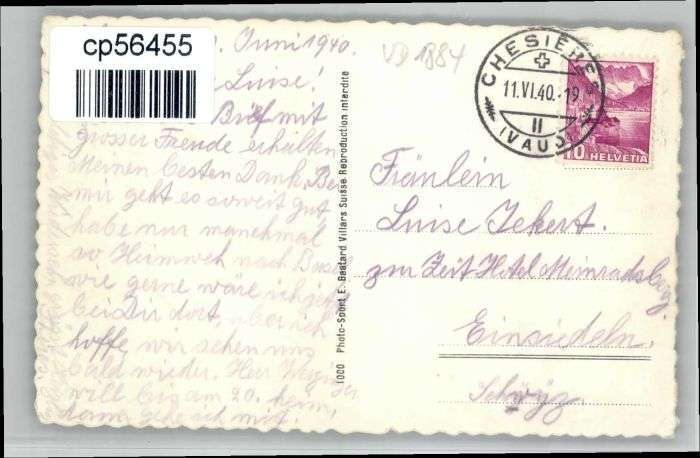 cp56455
Juni 1940.
VD 1884
Luise!
Brief mit
grosser Freude erhalten
Meinen besten Dank. Bei
mir geht es soweit gut
habe nur manchmal
so Heimweh nach Basel
wie gerne wäre ich jetzt
bei Dir dort, aber ich
hoffe, wir sehen uns
bald wieder. Herr
will big am 20. heim,
dann gehe ich mit.
1000 Photo-Sport E. Bastard Villars Suisse Reproduction interdite
CHESIÈRES
11.VI.40.-19
II
(VAUD)
10 HELVETIA
Fräulein
Luise Jekert.
zur Zeit Hotel Meinradsberg
Einsiedeln.
Schwyz.